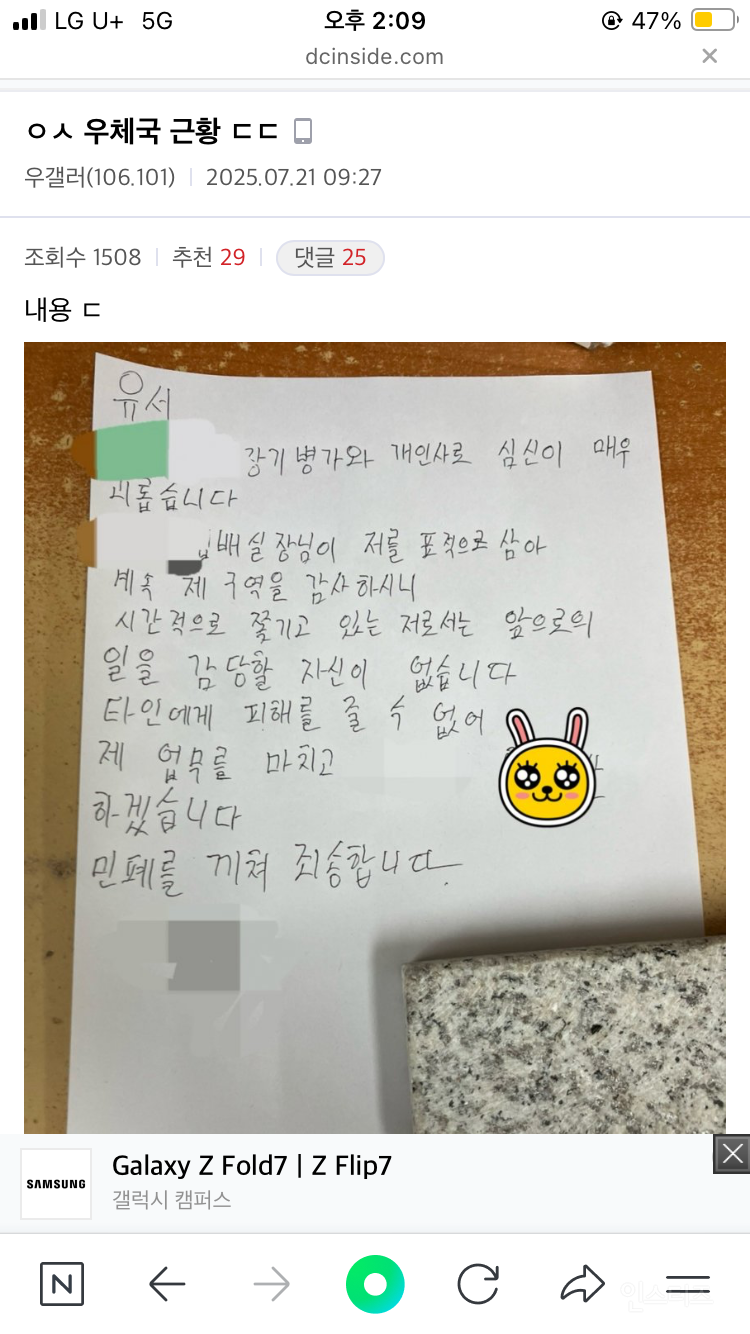 LG U+ 5G 오후 2:09 47%
dcinside.com
ㅇㅅ 우체국 근황 ㄷㄷ
우갤러(106.101) 2025.07.21 09:27
조회수 1508 추천 29 댓글 25
내용 ㄷ
유서
장기 병가와 개인사로 심신이 매우
괴롭습니다
배실장님이 저를 표적으로 삼아
계속 제 구역을 감사하시니
시간적으로 쫓기고 있는 저로서는 앞으로의
일을 감당할 자신이 없습니다
타인에게 피해를 줄 수 없어
제 업무를 마치고
하겠습니다
민폐를 끼쳐 죄송합니다.
SAMSUNG
Galaxy Z Fold7 | Z Flip7
갤럭시 캠퍼스
N
인스티즈